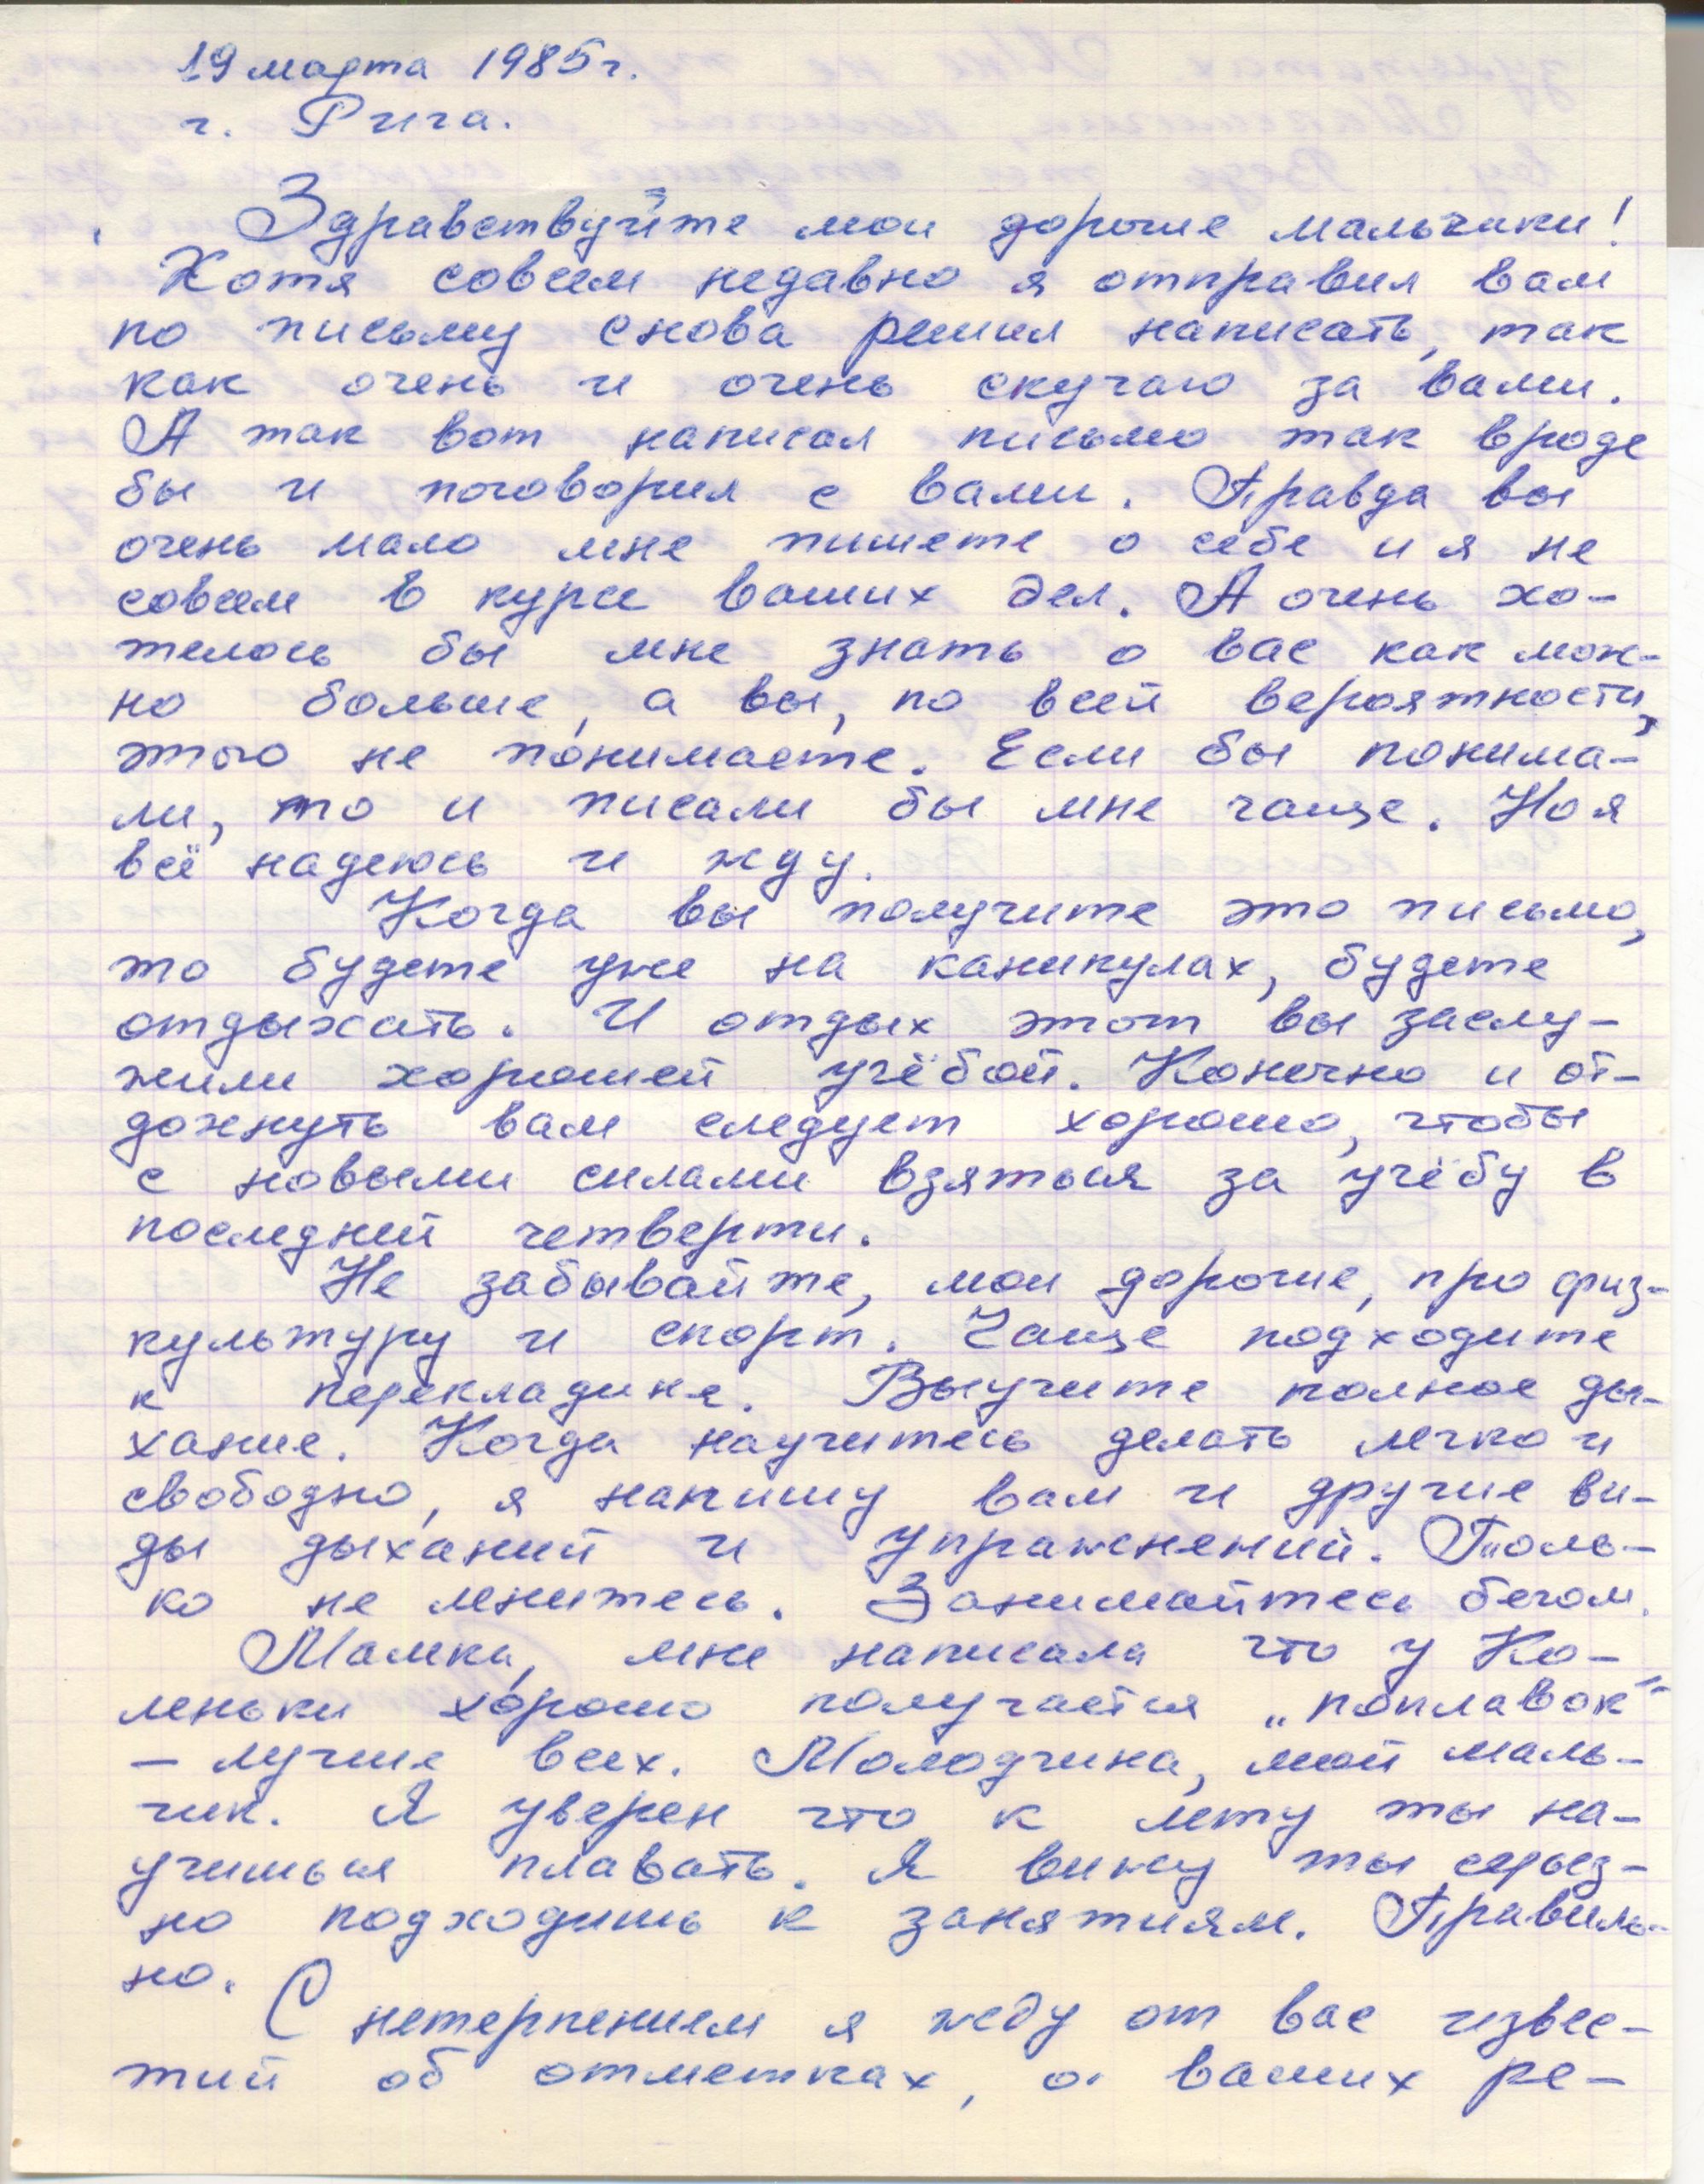 19 марта 1985 г.
г. Рига.
Здравствуйте мои дорогие мальчики!
Хотя совсем недавно я отправил вам
по письму снова решил написать, так
как очень и очень скучаю за вами.
А так вот написал письмо так вроде
бы и поговорил с вами. Правда вы
очень мало мне пишете о себе и я не
совсем в курсе ваших дел. А очень хо-
телось бы мне знать о вас как мож-
но больше, а вы, по всей вероятности,
этого не понимаете. Если бы понима-
ли, то и писали бы мне чаще. Но я
всё надеюсь и жду.
Когда вы получите это письмо,
то будете уже на каникулах, будете
отдыхать. И отдых этот вы заслу-
жили хорошей учёбой. Конечно и от-
дохнуть вам следует хорошо, чтобы
с новыми силами взяться за учёбу в
последней четверти.
Не забывайте, мои дорогие, про физ-
культуру и спорт. Чаще подходите
к перекладине. Выучите полное ды-
хание. Когда научитесь делать легко и
свободно, я напишу вам и другие ви-
ды дыханий и упражнений. Толь-
ко не ленитесь. Занимайтесь бегом.
Мамка, мне написала что у Ко-
леньки хорошо получается „поплавок"
– лучше всех. Молодчина, мой маль-
чик. Я уверен что к лету ты на-
учишься плавать. Я вижу ты серьёз-
но подходишь к занятиям. Правиль-
но.
С нетерпением я жду от вас извес-
тий об отметках, о ваших ре-